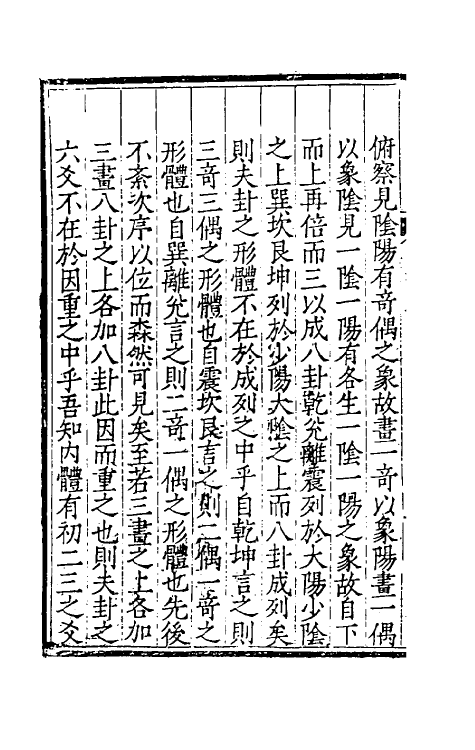 俯察見陰陽有奇偶之象故畫一奇以象陽畫一偶
以象陰見一陰一陽有各生一陰一陽之象故自下
而上再倍而三以成八卦乾兊離震列於大陽少陰
之上巽坎艮坤列於少陽大陰之上而八卦成列矣
則夫卦之形體不在於成列之中乎自乾坤言之則
三奇三偶之形體也自震坎艮言之則二偶一奇之
形體也自巽離兊言之則二奇一偶之形體也先後
不紊次序以位而森然可見矣至若三畫之上各加
三畫八卦之上各加八卦此因而重之也則夫卦之
六爻不在於因重之中乎吾知内體有初二三之爻